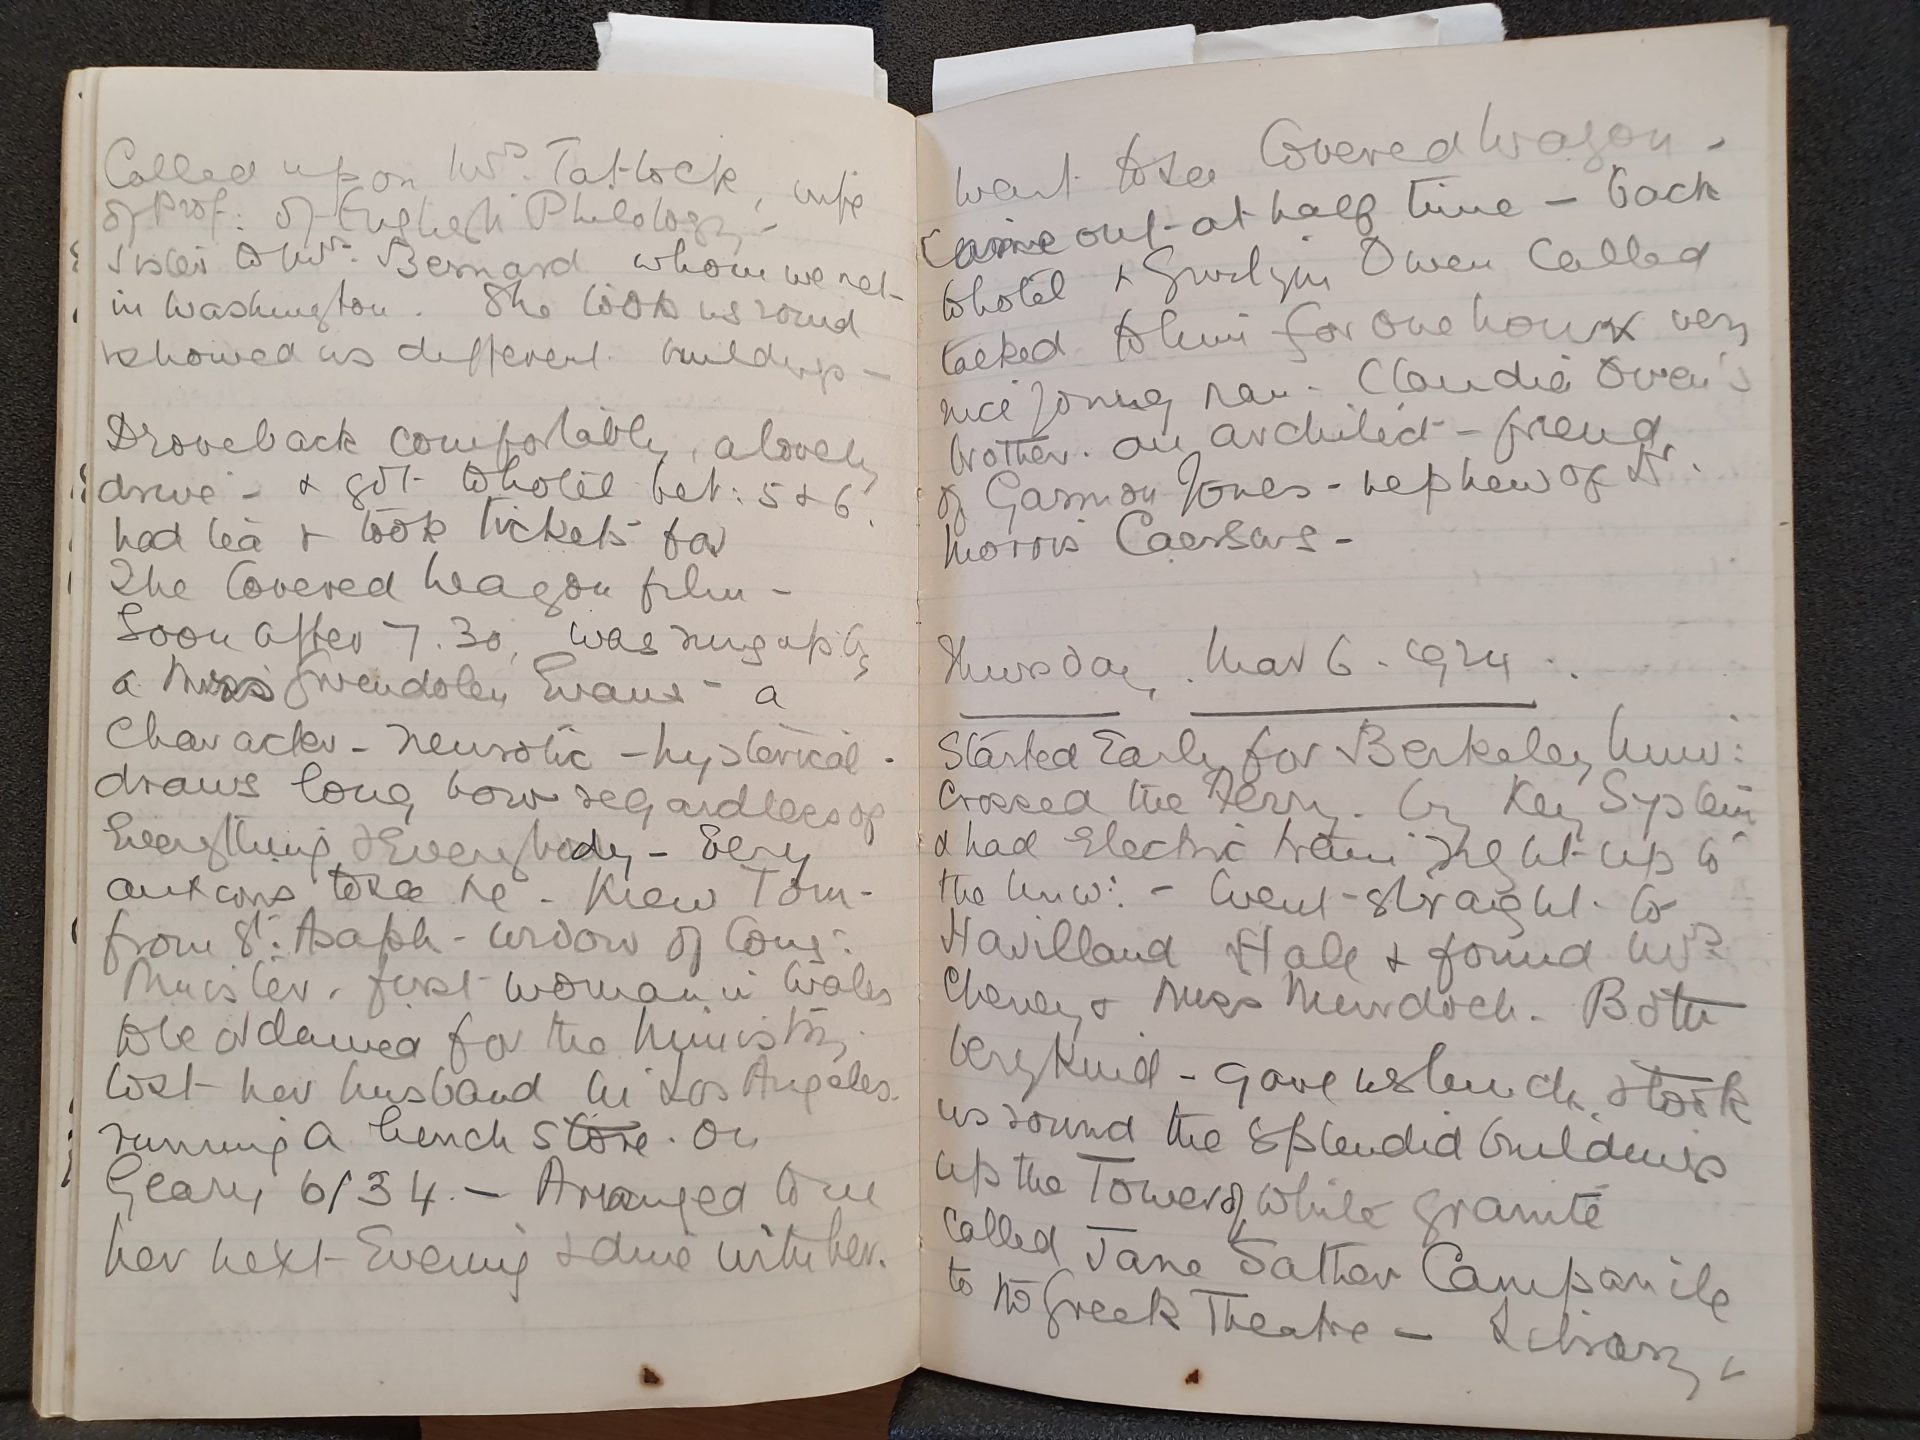 Called upon Mrs. Tatlock, wife
of Prof: of English Philology -
sister to Mrs. Bernard whom we met
in Washington. She took us round
& showed us different buildings -
Drove back comfortably, a lovely
drive - & got to hotel bet: 5 & 6.
had tea & took tickets for
The Covered Wagon film -
Soon after 7.30, was rung up by
a Miss Gwendolen Evans - a
Character - neurotic - hysterical -
draws long bow regardless of
Everything & Everybody - Very
anxious to see me - knew Tom -
from St. Asaph - widow of Cong:
Minister, first woman in Wales
to be ordained for the Ministry.
lost her husband in Los Angeles.
running a lunch store. on
Geary 6/34. - Arranged to see
her next Evening & dine with her.
went to see Covered Wagon,
Came out at half time - back
to hotel & Gwilym Owen called
talked to him for one hour & very
nice young man - Claudia Owen's
brother. an architect - friend
of Garmon Jones - nephew of Dr.
Morris Caersws -
Thursday, Mar 6. 1924.
Started Early for Berkeley Univ:
Crossed the Ferry. by Key System
& had Electric train right up to
the Univ: - Went straight to
Havilland Hall & found Mrs.
Cheney & Miss Murdoch. Both
very kind - gave us lunch, & took
us round the splendid buildings
up the Tower of white granite
called Jane Sather Campanile
to the Greek Theatre - Library,